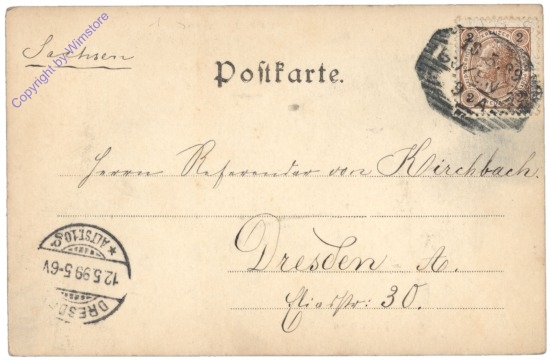 Sachsen
Copyright by Wimstore
Postkarte.
2 2
9
Herrn Referendar von Kirchbach.
Dresden-A.
Eliasstr: 30.
DRESDEN
12.5.99.5-6V
* ALTST.10.c